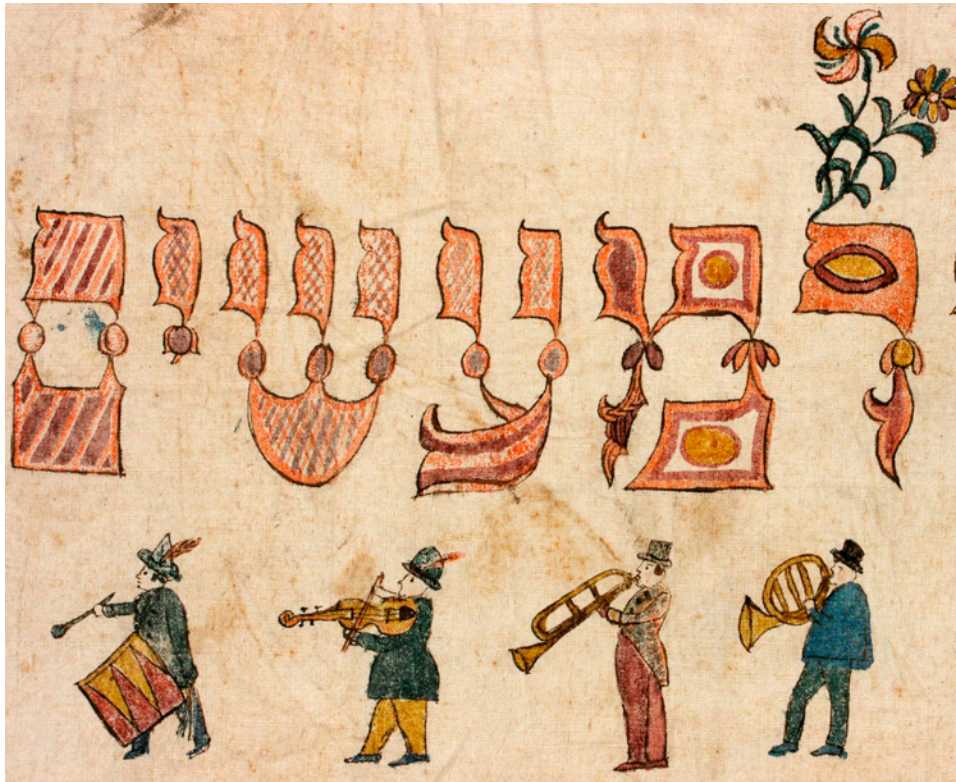 למעשים